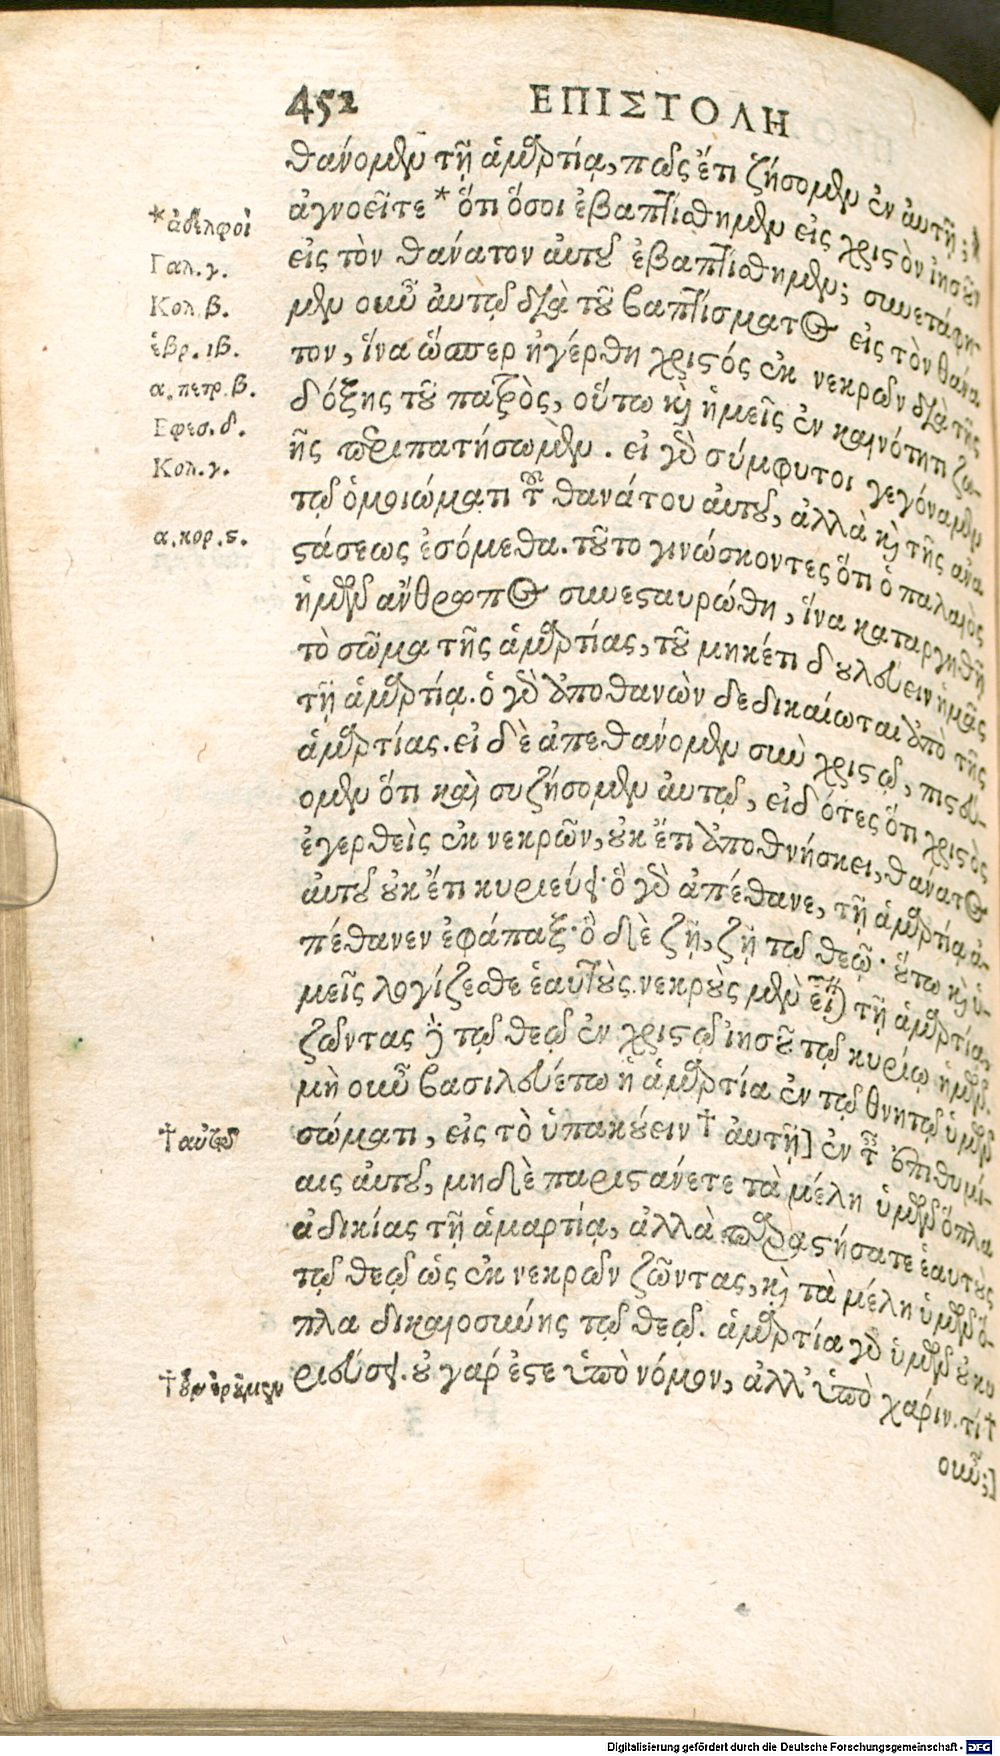 452 ΕΠΙΣΤΟΛΗ
θανόμεν τῇ ἁμαρτίᾳ, πῶς ἔτι ζήσομεν ἐν αὐτῇ;
ἀγνοεῖτε * ὅτι ὅσοι ἐβαπτίσθημεν εἰς χριστὸν ἰησοῦν
*ἀδελφοὶ
εἰς τὸν θάνατον αὐτοῦ ἐβαπτίσθημεν; συνετάφη
Γαλ. γ.
μεν οὖν αὐτῷ διὰ τοῦ βαπτίσματος εἰς τὸν θάνα
Κολ. β.
τον, ἵνα ὥσπερ ἠγέρθη χριστός ἐκ νεκρῶν διὰ τῆς
ἑβρ. ιβ.
δόξης τοῦ πατρὸς, οὕτω καὶ ἡμεῖς ἐν καινότητι ζω-
α. πετρ. β.
ῆς περιπατήσωμεν. εἰ γὰρ σύμφυτοι γεγόναμεν
Εφεσ. δ.
τῷ ὁμοιώματι τοῦ θανάτου αὐτοῦ, ἀλλὰ καὶ τῆς ἀνα
Κολ. γ.
στάσεως ἐσόμεθα. τοῦτο γινώσκοντες ὅτι ὁ παλαιὸς
α. κορ. ς.
ἡμῶν ἄνθρωπος συνεσταυρώθη, ἵνα καταργηθῇ
τὸ σῶμα τῆς ἁμαρτίας, τοῦ μηκέτι δουλεύειν ἡμᾶς
τῇ ἁμαρτίᾳ. ὁ γὰρ ἀποθανὼν δεδικαίωται ἀπὸ τῆς
ἁμαρτίας. εἰ δὲ ἀπεθάνομεν σὺν χριστῷ, πιστεύ-
ομεν ὅτι καὶ συζήσομεν αὐτῷ, εἰδότες ὅτι χριστὸς
ἐγερθεὶς ἐκ νεκρῶν, οὐκ ἔτι ἀποθνήσκει, θάνατος
αὐτοῦ οὐκ ἔτι κυριεύει· ὃ γὰρ ἀπέθανε, τῇ ἁμαρτίᾳ ἀ-
πέθανεν ἐφάπαξ· ὃ δὲ ζῇ, ζῇ τῷ θεῷ· οὕτω καὶ ὑ-
μεῖς λογίζεσθε ἑαυτοὺς νεκροὺς μὲν εἶναι τῇ ἁμαρτίᾳ,
ζῶντας δὲ τῷ θεῷ ἐν χριστῷ ἰησοῦ τῷ κυρίῳ ἡμῶν.
μὴ οὖν βασιλευέτω ἡ ἁμαρτία ἐν τῷ θνητῷ ὑμῶν
σώματι, εἰς τὸ ὑπακούειν † αὐτῇ] ἐν ταῖς ἐπιθυμί-
†αὐτοῦ
αις αὐτοῦ, μηδὲ παριστάνετε τὰ μέλη ὑμῶν ὅπλα
ἀδικίας τῇ ἁμαρτίᾳ, ἀλλὰ παραστήσατε ἑαυτοὺς
τῷ θεῷ ὡς ἐκ νεκρῶν ζῶντας, καὶ τὰ μέλη ὑμῶν ὅ-
πλα δικαιοσύνης τῷ θεῷ. ἁμαρτία γὰρ ὑμῶν οὐ κυ
ριεύσει. οὐ γάρ ἐστε ὑπὸ νόμον, ἀλλ' ὑπὸ χάριν. τί †
†οὖν ἐροῦμεν
οὖν;]
Digitalisierung gefördert durch die Deutsche Forschungsgemeinschaft - DFG